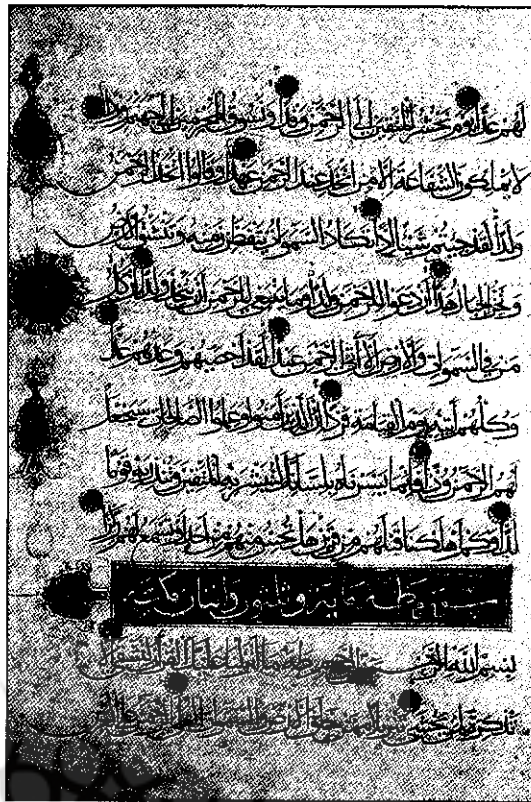 لهم عدا يوم نحشر المتقين الى الرحمن وفدا ونسوق المجرمين الى جهنم وردا
لا يملكون الشفاعة الا من اتخذ عند الرحمن عهدا وقالوا اتخذ الرحمن
ولدا لقد جئتم شيئا ادا تكاد السموات يتفطرن منه وتنشق الارض
وتخر الجبال هدا ان دعوا للرحمن ولدا وما ينبغي للرحمن ان يتخذ ولدا ان كل
من في السموات والارض الا اتي الرحمن عبدا لقد احصيهم وعدهم عدا
وكلهم اتيه يوم القيامة فردا ان الذين امنوا وعملوا الصالحات سيجعل
لهم الرحمن ودا فانما يسرناه بلسانك لتبشر به المتقين وتنذر به قوما
لدا وكم اهلكنا قبلهم من قرن هل تحس منهم من احد او تسمع لهم ركزا
سورة طه مایة وثلثون واثنان مكية
بسم الله الرحمن الرحيم طه ما انزلنا عليك القران لتشقى الا
تذكرة لمن يخشى تنزيلا ممن خلق الارض والسموات العلى الرحمن على العرش